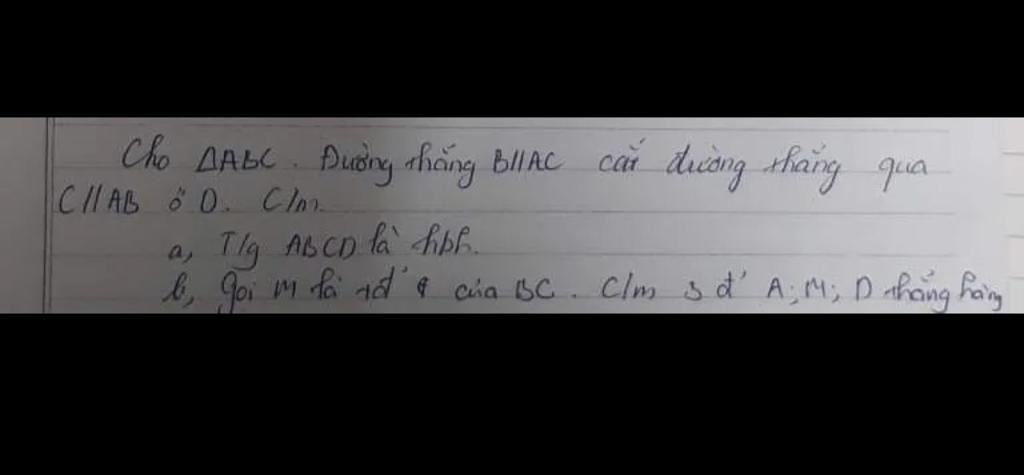 Cho ΔABC. Đường thẳng B//AC cắt đường thẳng qua
C//AB ở D. C/m.
a, T/g ABCD là hbh.
b, gọi M là tđ' của BC. C/m 3 đ' A; M; D thẳng hàng